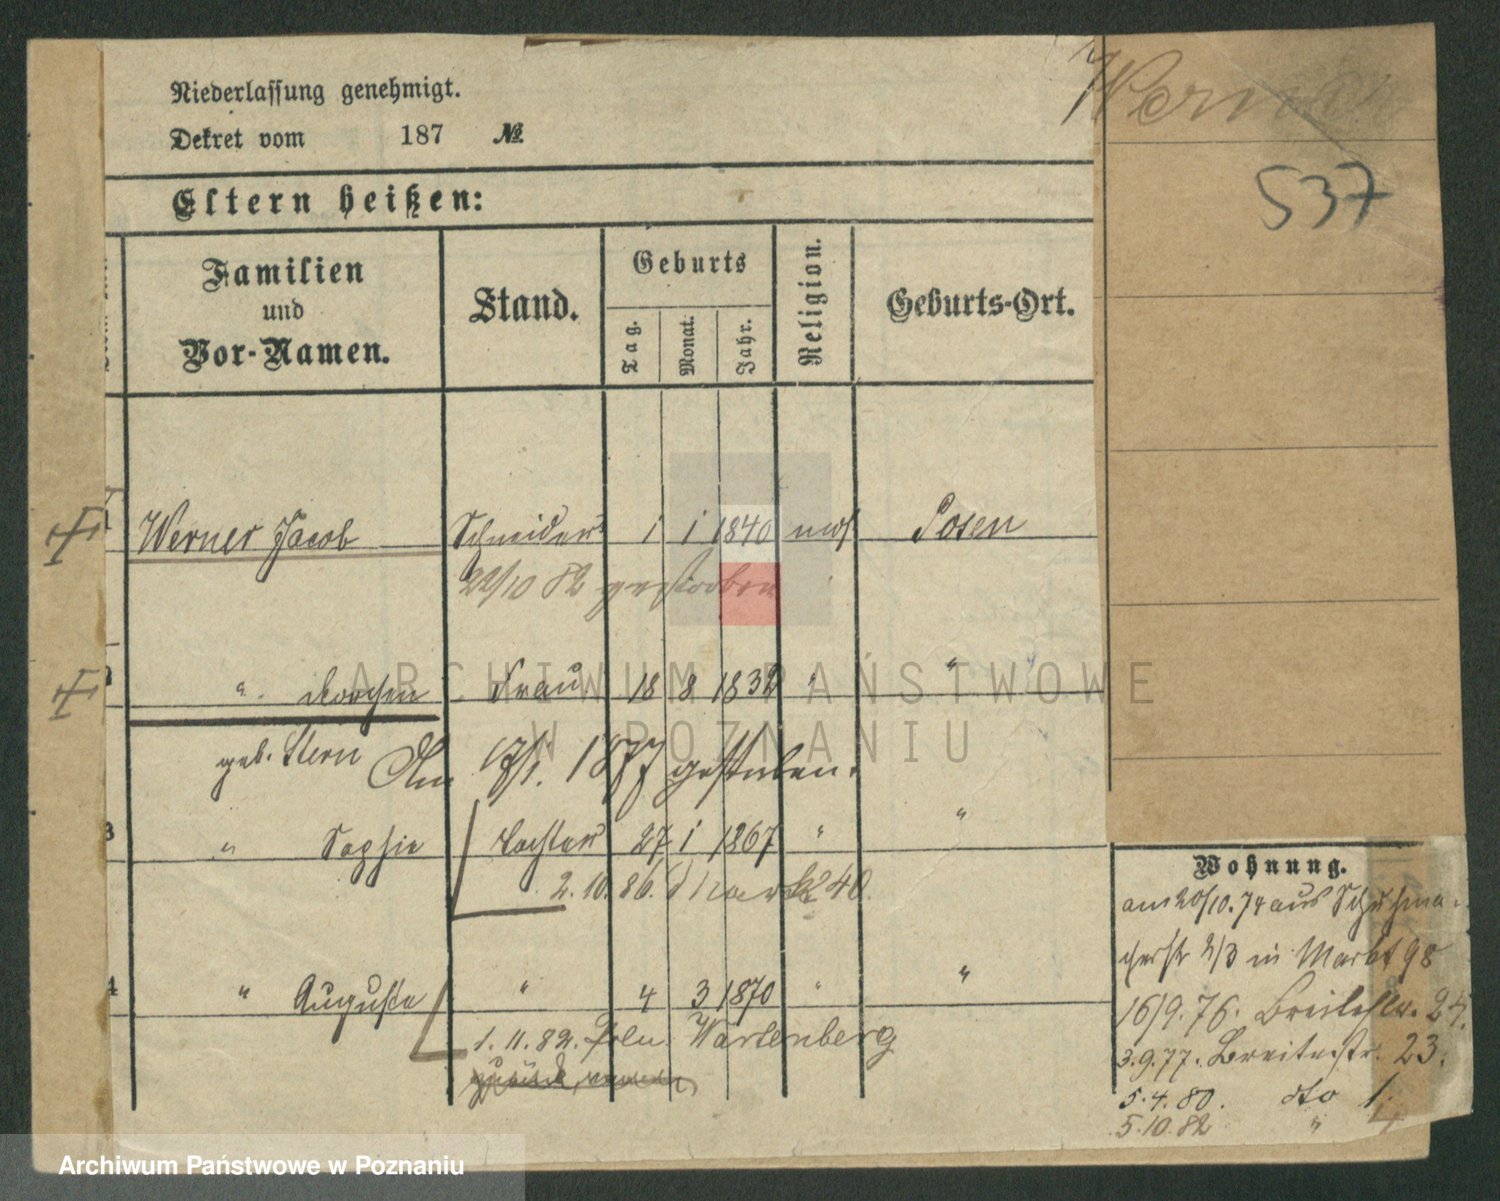 Niederlassung genehmigt.
Dekret vom 187 №
Eltern heißen:
Familien und Vor-Namen.
Stand.
Geburts
Tag.
Monat.
Jahr.
Religion.
Geburts-Ort.
537
1 Werner Jacob Schneider 1 1 1840 mos Posen
22/10 82 gestorben
2 " Dorchen Frau 18 8 1832 " "
geb. Stern Am 17/1. 1877 gestorben.
3 " Sophie Tochter 27 1 1867 " "
2.10.86. Markt 40.
4 " Auguste " 4 3 1870 " "
1.11.82. Poln. Wartenberg
Wohnung.
am 20/10.74 aus Schuhma-
cherstr 2/3 in Markt 98
16/9.76. Breitestr. 24.
3.9.77. Breitestr. 23.
5.4.80. dto 1.
5.10.82 "
ARCHIWUM PAŃSTWOWE
W POZNANIU
Archiwum Państwowe w Poznaniu